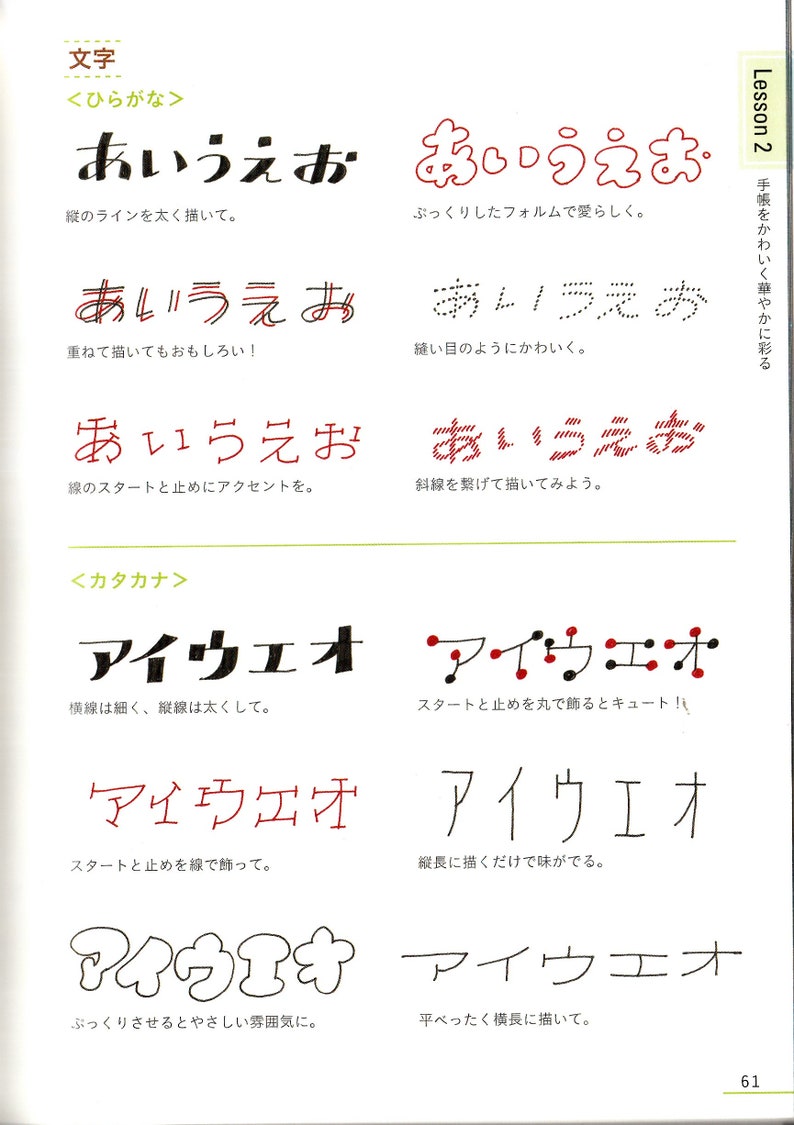 文字
<ひらがな>
あいうえお
縦のラインを太く描いて。
あいうえお
ぷっくりしたフォルムで愛らしく。
あいうえお
重ねて描いてもおもしろい！
あいうえお
縫い目のようにかわいく。
あいうえお
線のスタートと止めにアクセントを。
あいうえお
斜線を繋げて描いてみよう。
<カタカナ>
アイウエオ
横線は細く、縦線は太くして。
アイウエオ
スタートと止めを丸で飾るとキュート！
アイウエオ
スタートと止めを線で飾って。
アイウエオ
縦長に描くだけで味がでる。
アイウエオ
ぷっくりさせるとやさしい雰囲気に。
アイウエオ
平べったく横長に描いて。
Lesson 2
手帳をかわいく華やかに彩る
61